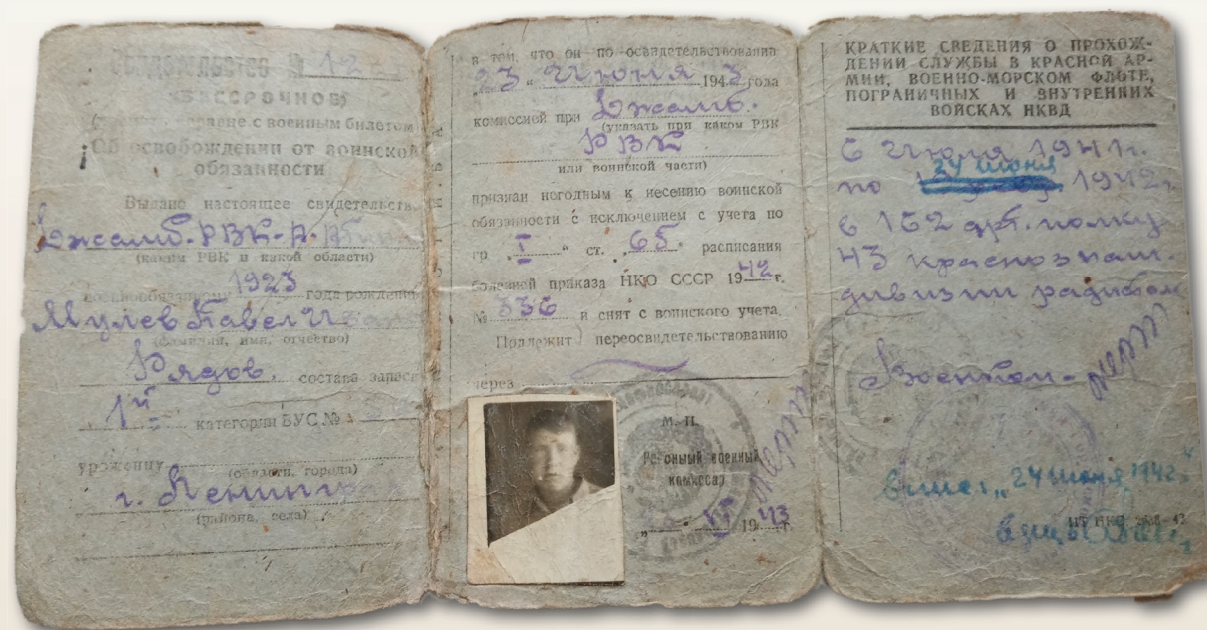 СВИДЕТЕЛЬСТВО № 12
(БЕССРОЧНОЕ)
наравне с военным билетом
Об освобождении от воинской
обязанности
Выдано настоящее свидетельств
Джамб. РВК-А-А
(каким РВК и какой области)
военнообязанному 1923 года рождения
Мулев Павел И
(фамилия, имя, отчество)
Рядов. состава запаса
1й категории ВУС №
уроженцу
(области, города)
г. Ленингр
(района, села)
в том, что он по освидетельствовании
„23“ Июня 1943 года
комиссией при Джамб.
(указать при каком РВК
РВК
или воинской части)
признан негодным к несению воинской
обязанности с исключением с учета по
гр. „I“ ст. „65“ расписания
болезней приказа НКО СССР 1942 г.
№ 336 и снят с воинского учета.
Подлежит переосвидетельствованию
через
М. П.
Районный военный
комиссар
1943 г.
КРАТКИЕ СВЕДЕНИЯ О ПРОХОЖ-
ДЕНИИ СЛУЖБЫ В КРАСНОЙ АР-
МИИ, ВОЕННО-МОРСКОМ ФЛОТЕ,
ПОГРАНИЧНЫХ И ВНУТРЕННИХ
ВОЙСКАХ НКВД
С Июля 1941 г.
24 июня
по 1942 г.
в 162 арт. полку
43 краснознам.
дивизии радистом
Военком-
„24 июня 1942“